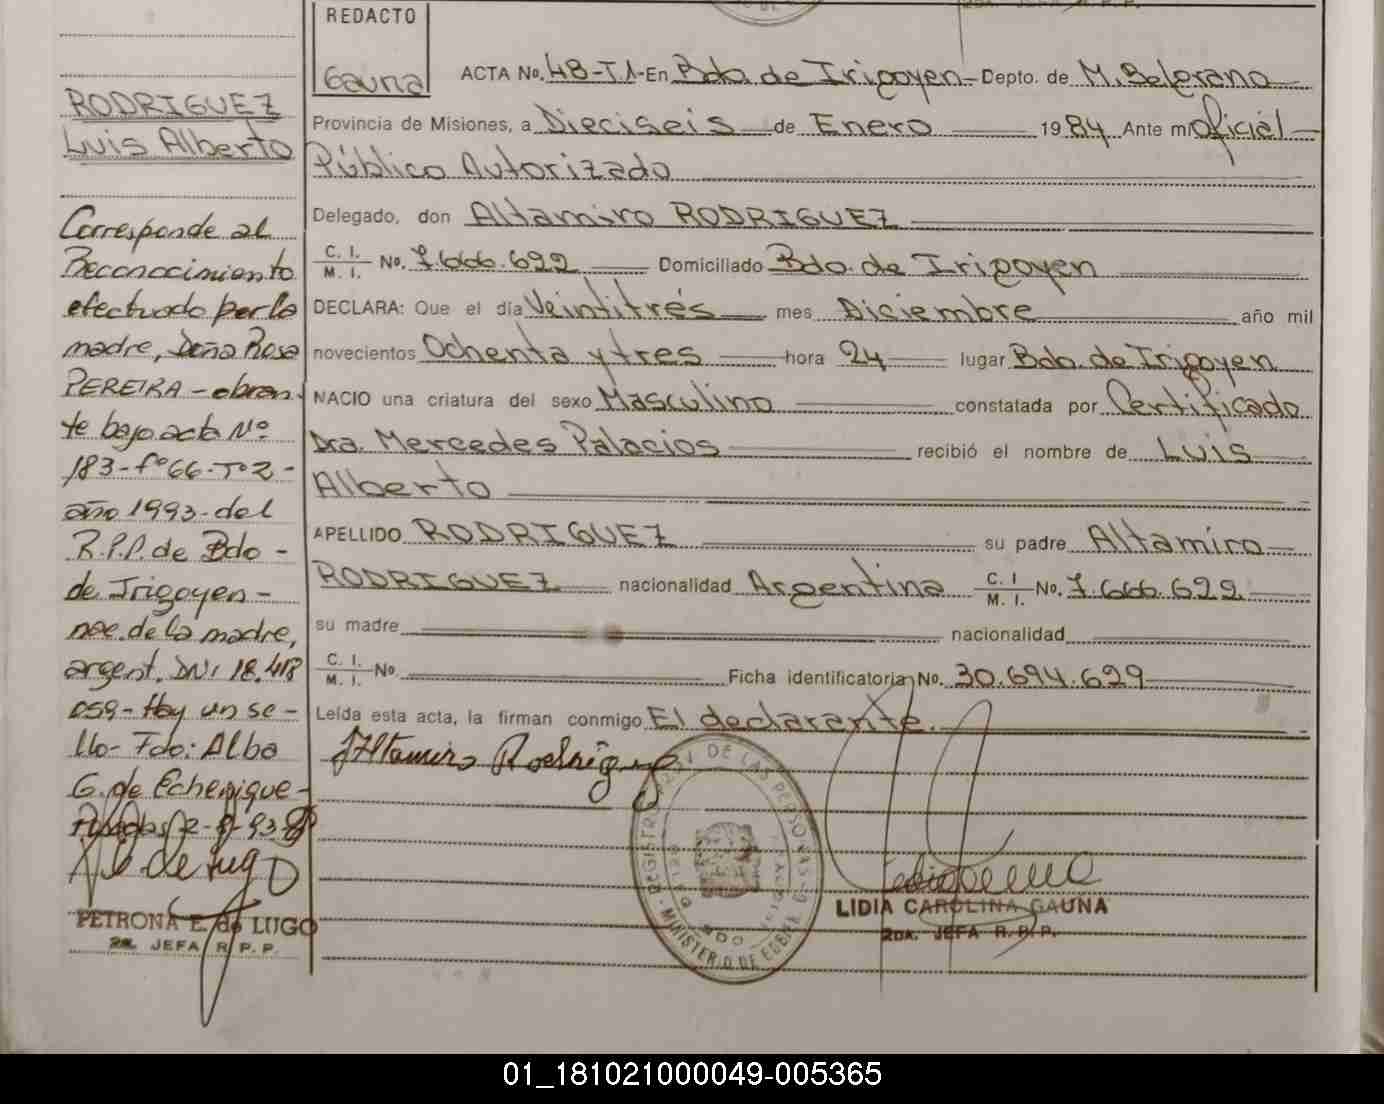 REDACTO
Gauna
RODRIGUEZ
Luis Alberto
Corresponde al
Reconocimiento
efectuado por la
madre, Doña Rosa
PEREIRA - obran-
te bajo acta Nº
183 - fº 66 - Tº 2 -
año 1993 - del
R.P.P. de Bdo -
de Irigoyen -
nac. de la madre,
argent. DNI 18.418
059 - Hay un se -
llo - Fdo: Alba
G. de Echenique -
PETRONA E. de LUGO
2a. JEFA R. P. P.
ACTA No. 48-T1- En Bdo. de Irigoyen - Depto. de M. Belgrano
Provincia de Misiones, a Dieciseis de Enero 1984 Ante mi Oficial
Público Autorizado
Delegado, don Altamiro RODRIGUEZ
C. I. M. I. No. 7.666.622 Domiciliado Bdo. de Irigoyen
DECLARA: Que el día Veintitrés mes Diciembre año mil
novecientos Ochenta y tres hora 24 lugar Bdo. de Irigoyen
NACIO una criatura del sexo Masculino constatada por Certificado
Dra. Mercedes Palacios recibió el nombre de Luis
Alberto
APELLIDO RODRIGUEZ su padre Altamiro
RODRIGUEZ nacionalidad Argentina C. I. M. I. No. 7.666.622
su madre nacionalidad
C. I. M. I. No. Ficha identificatoria No. 30.694.629
Leída esta acta, la firman conmigo El declarante.
Altamiro Rodriguez
REGISTRO DE LAS PERSONAS
MINISTERIO DE
LIDIA CAROLINA GAUNA
2DA. JEFA R. P. P.
01_181021000049-005365